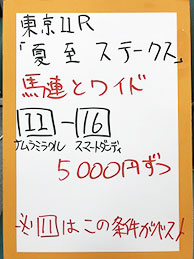 東京11R
「夏至ステークス」
馬連とワイド
11-16
サムラミラクル スマートダンディ
5000円ずつ
※11はこの条件がベスト